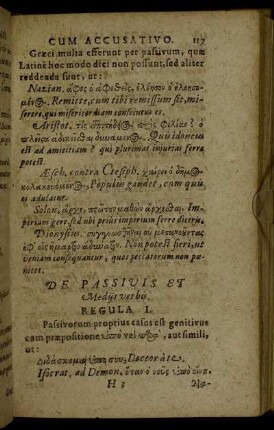 CUM ACCUSATIVO. 117
Græci multa efferunt per passivum, quæ
Latinè hoc modo dici non possunt, sed aliter
reddenda sunt, ut:
Nazian. ἄφες ὁ ἀφεθείς, ἐλέησον ὁ ἐλεημέ-
Remitte, cum tibi remissum sit, mi-
serere, qui misericordiam consecutus es.
Aristot. τίς φιλίας; ὁ
πλεῖστα ἀδικεῖσθαι δυνάμενος. Quis idoneus
est ad amicitiam? qui plurimas injurias ferre
potest.
Æsch. contra Ctesiph. χαίρει ὁ δῆμος
κολακευόμενος. Populus gaudet, cum quis
ei adulatur.
Solon, ἄρχε, πρῶτον μαθὼν ἄρχεσθαι. Im-
perium gere, sed ubi prius imperium ferre diceris.
Dionysius.
Non potest fieri, ut
veniam consequantur, quos peccatorum non pœ-
nitet.
DE PASSIVIS ET
Medijs verbis.
REGULA I.
Passivorum proprius casus est genitivus
cum præpositione ὑπὸ vel πρὸς, aut simili,
ut:
Διδάσκομαι ὑπὸ σου, Doceor à te.
Isocrat. ad Demon. ὅταν ὁ νοῦς ὑπὸ οἴνου
H 3